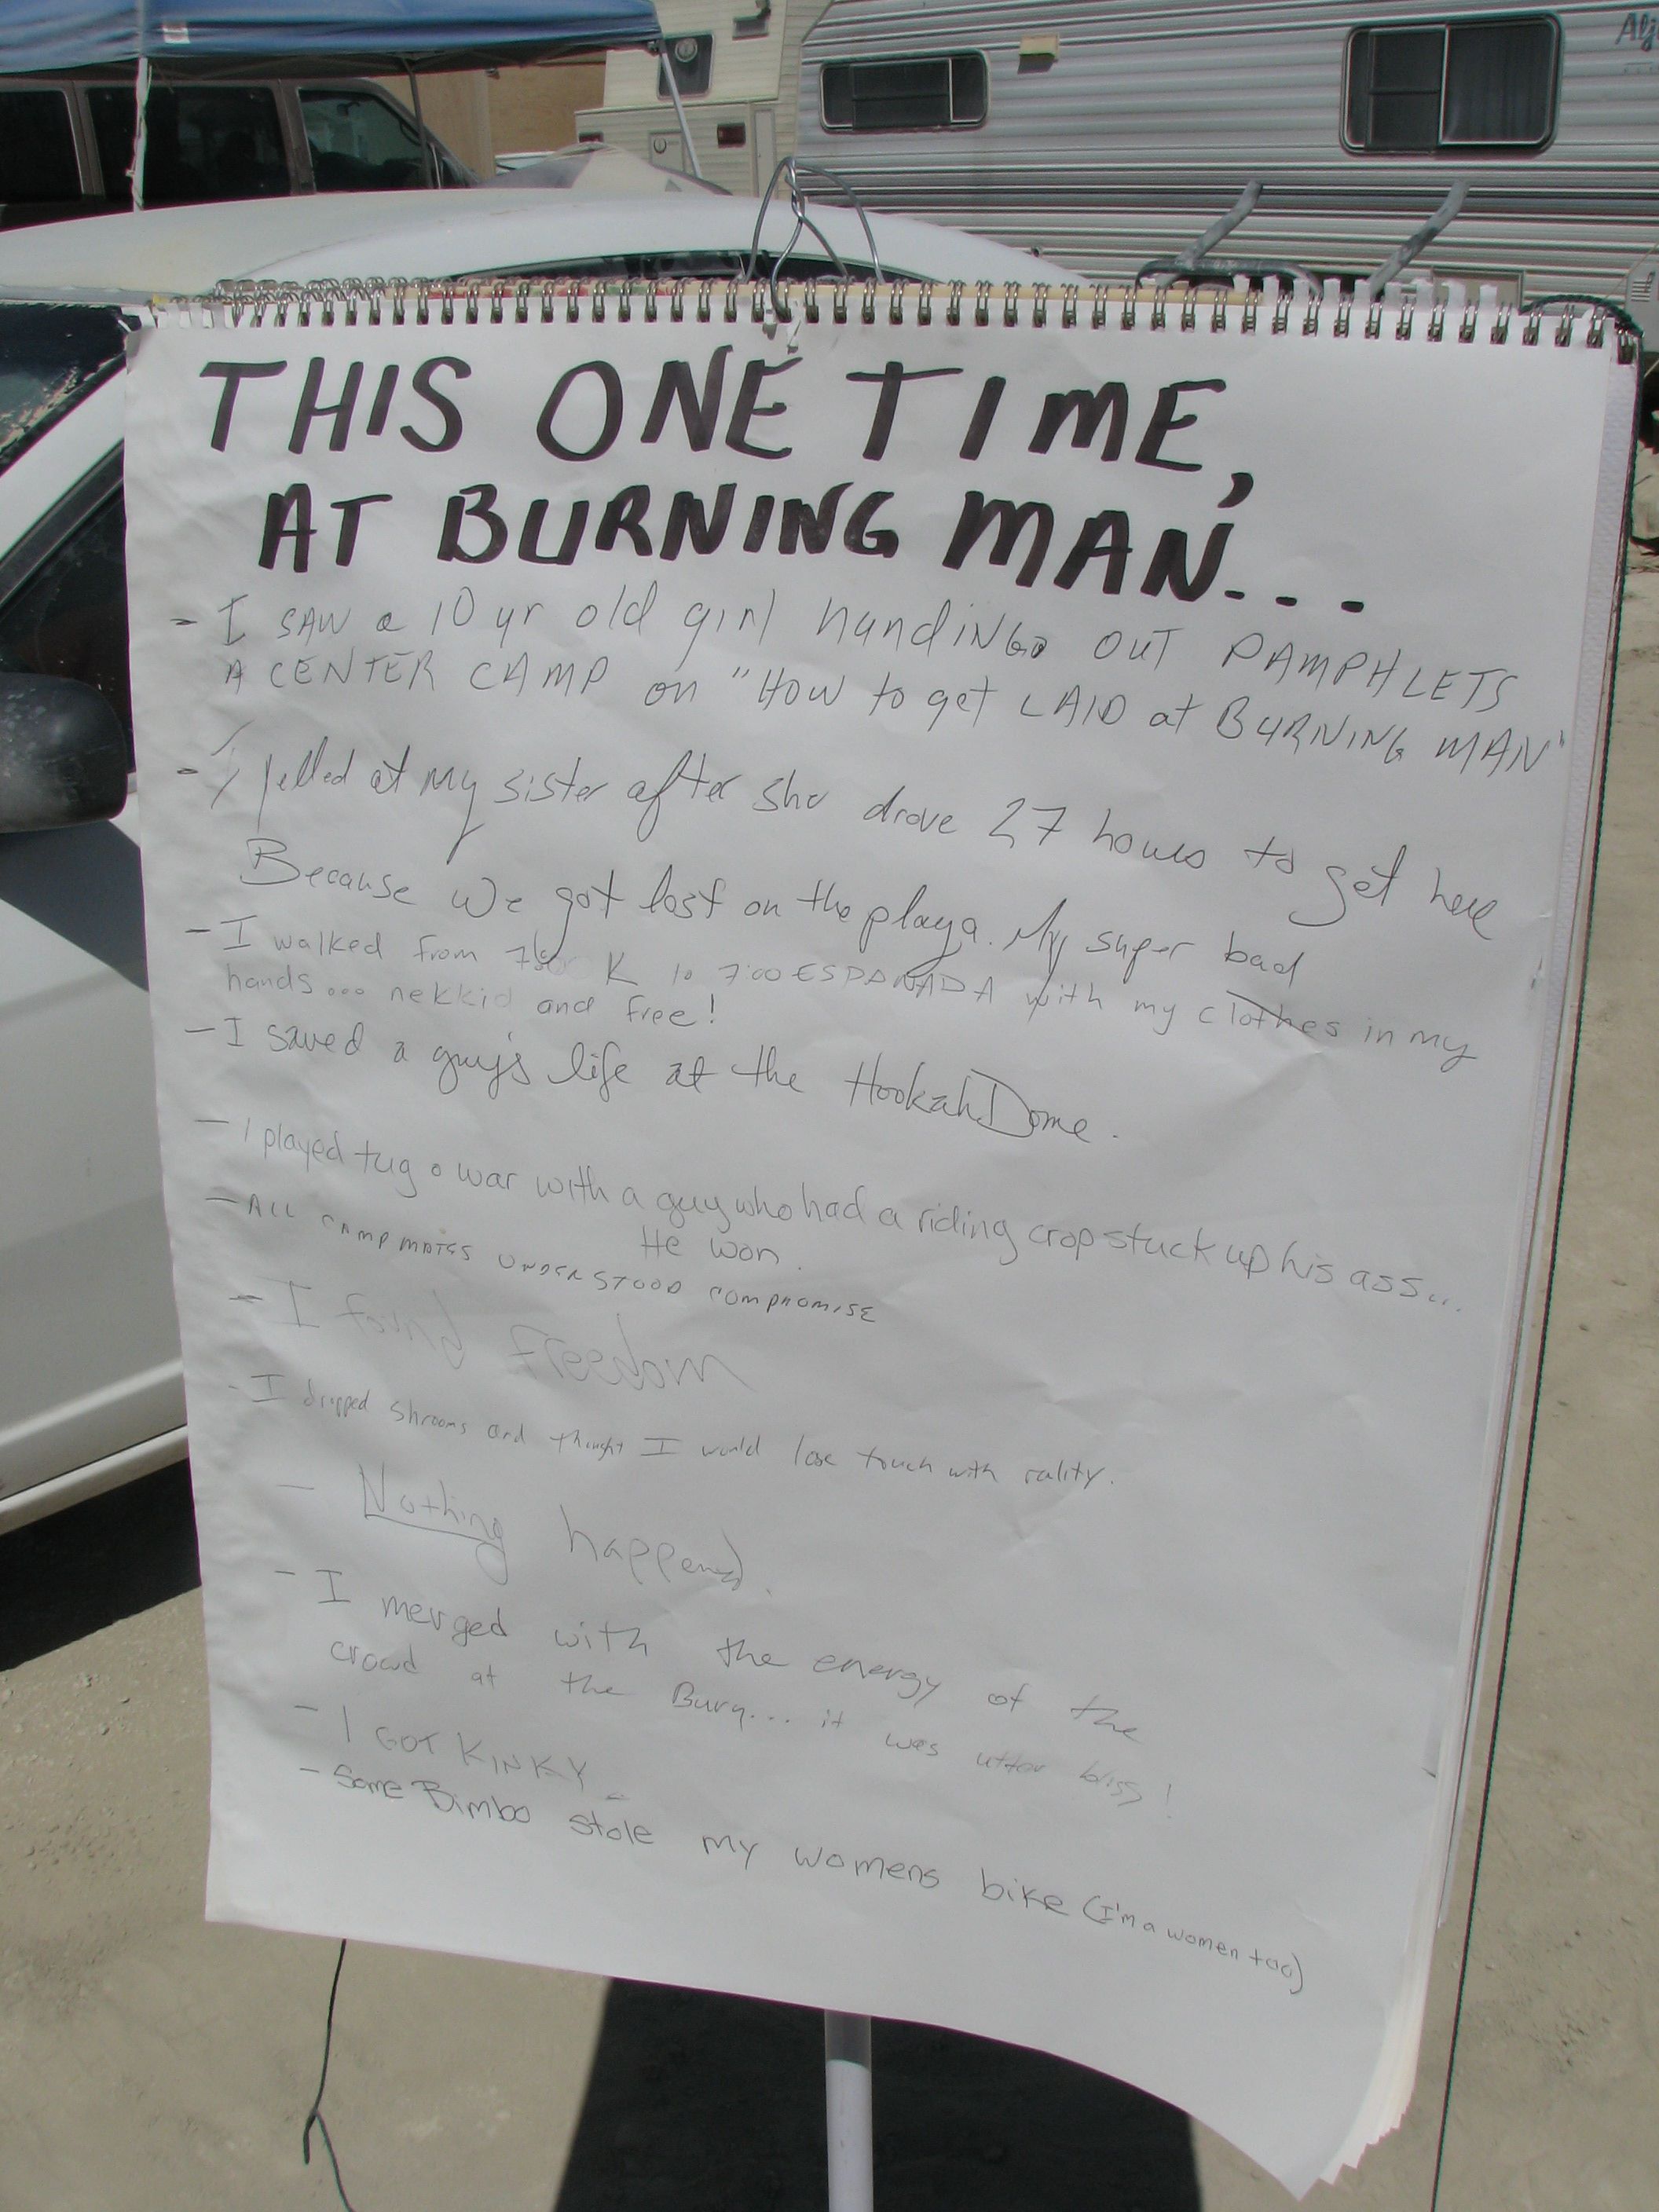 THIS ONE TIME,
AT BURNING MAN...
- I SAW a 10 yr old girl handing out PAMPHLETS
A CENTER CAMP on "HOW to get LAID at BURNING MAN"
- I yelled at my sister after she drove 27 hours to get here
Because we got lost on the playa. My super bad
- I walked from K to 7:00 ESPANADA with my clothes in my
hands... nekkid and free!
- I saved a guy's life at the Hookah Dome.
- I played tug o war with a guy who had a riding crop stuck up his ass...
He won.
- ALL CAMPMATES UNDERSTOOD COMPROMISE
- I found Freedom
- I dropped shrooms and thought I would lose touch with rality.
- Nothing happened.
- I merged with the energy of the
crowd at the Burn... it was utter bliss!
- I GOT KINKY
- Some Bimbo stole my womens bike (I'm a women too)